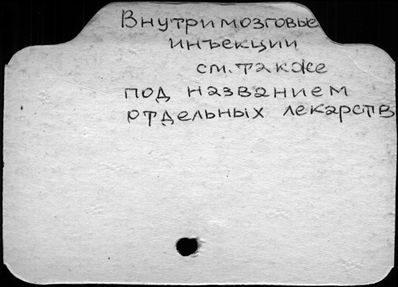 Внутримозговые
инъекции
см. также
под названием
отдельных лекарств